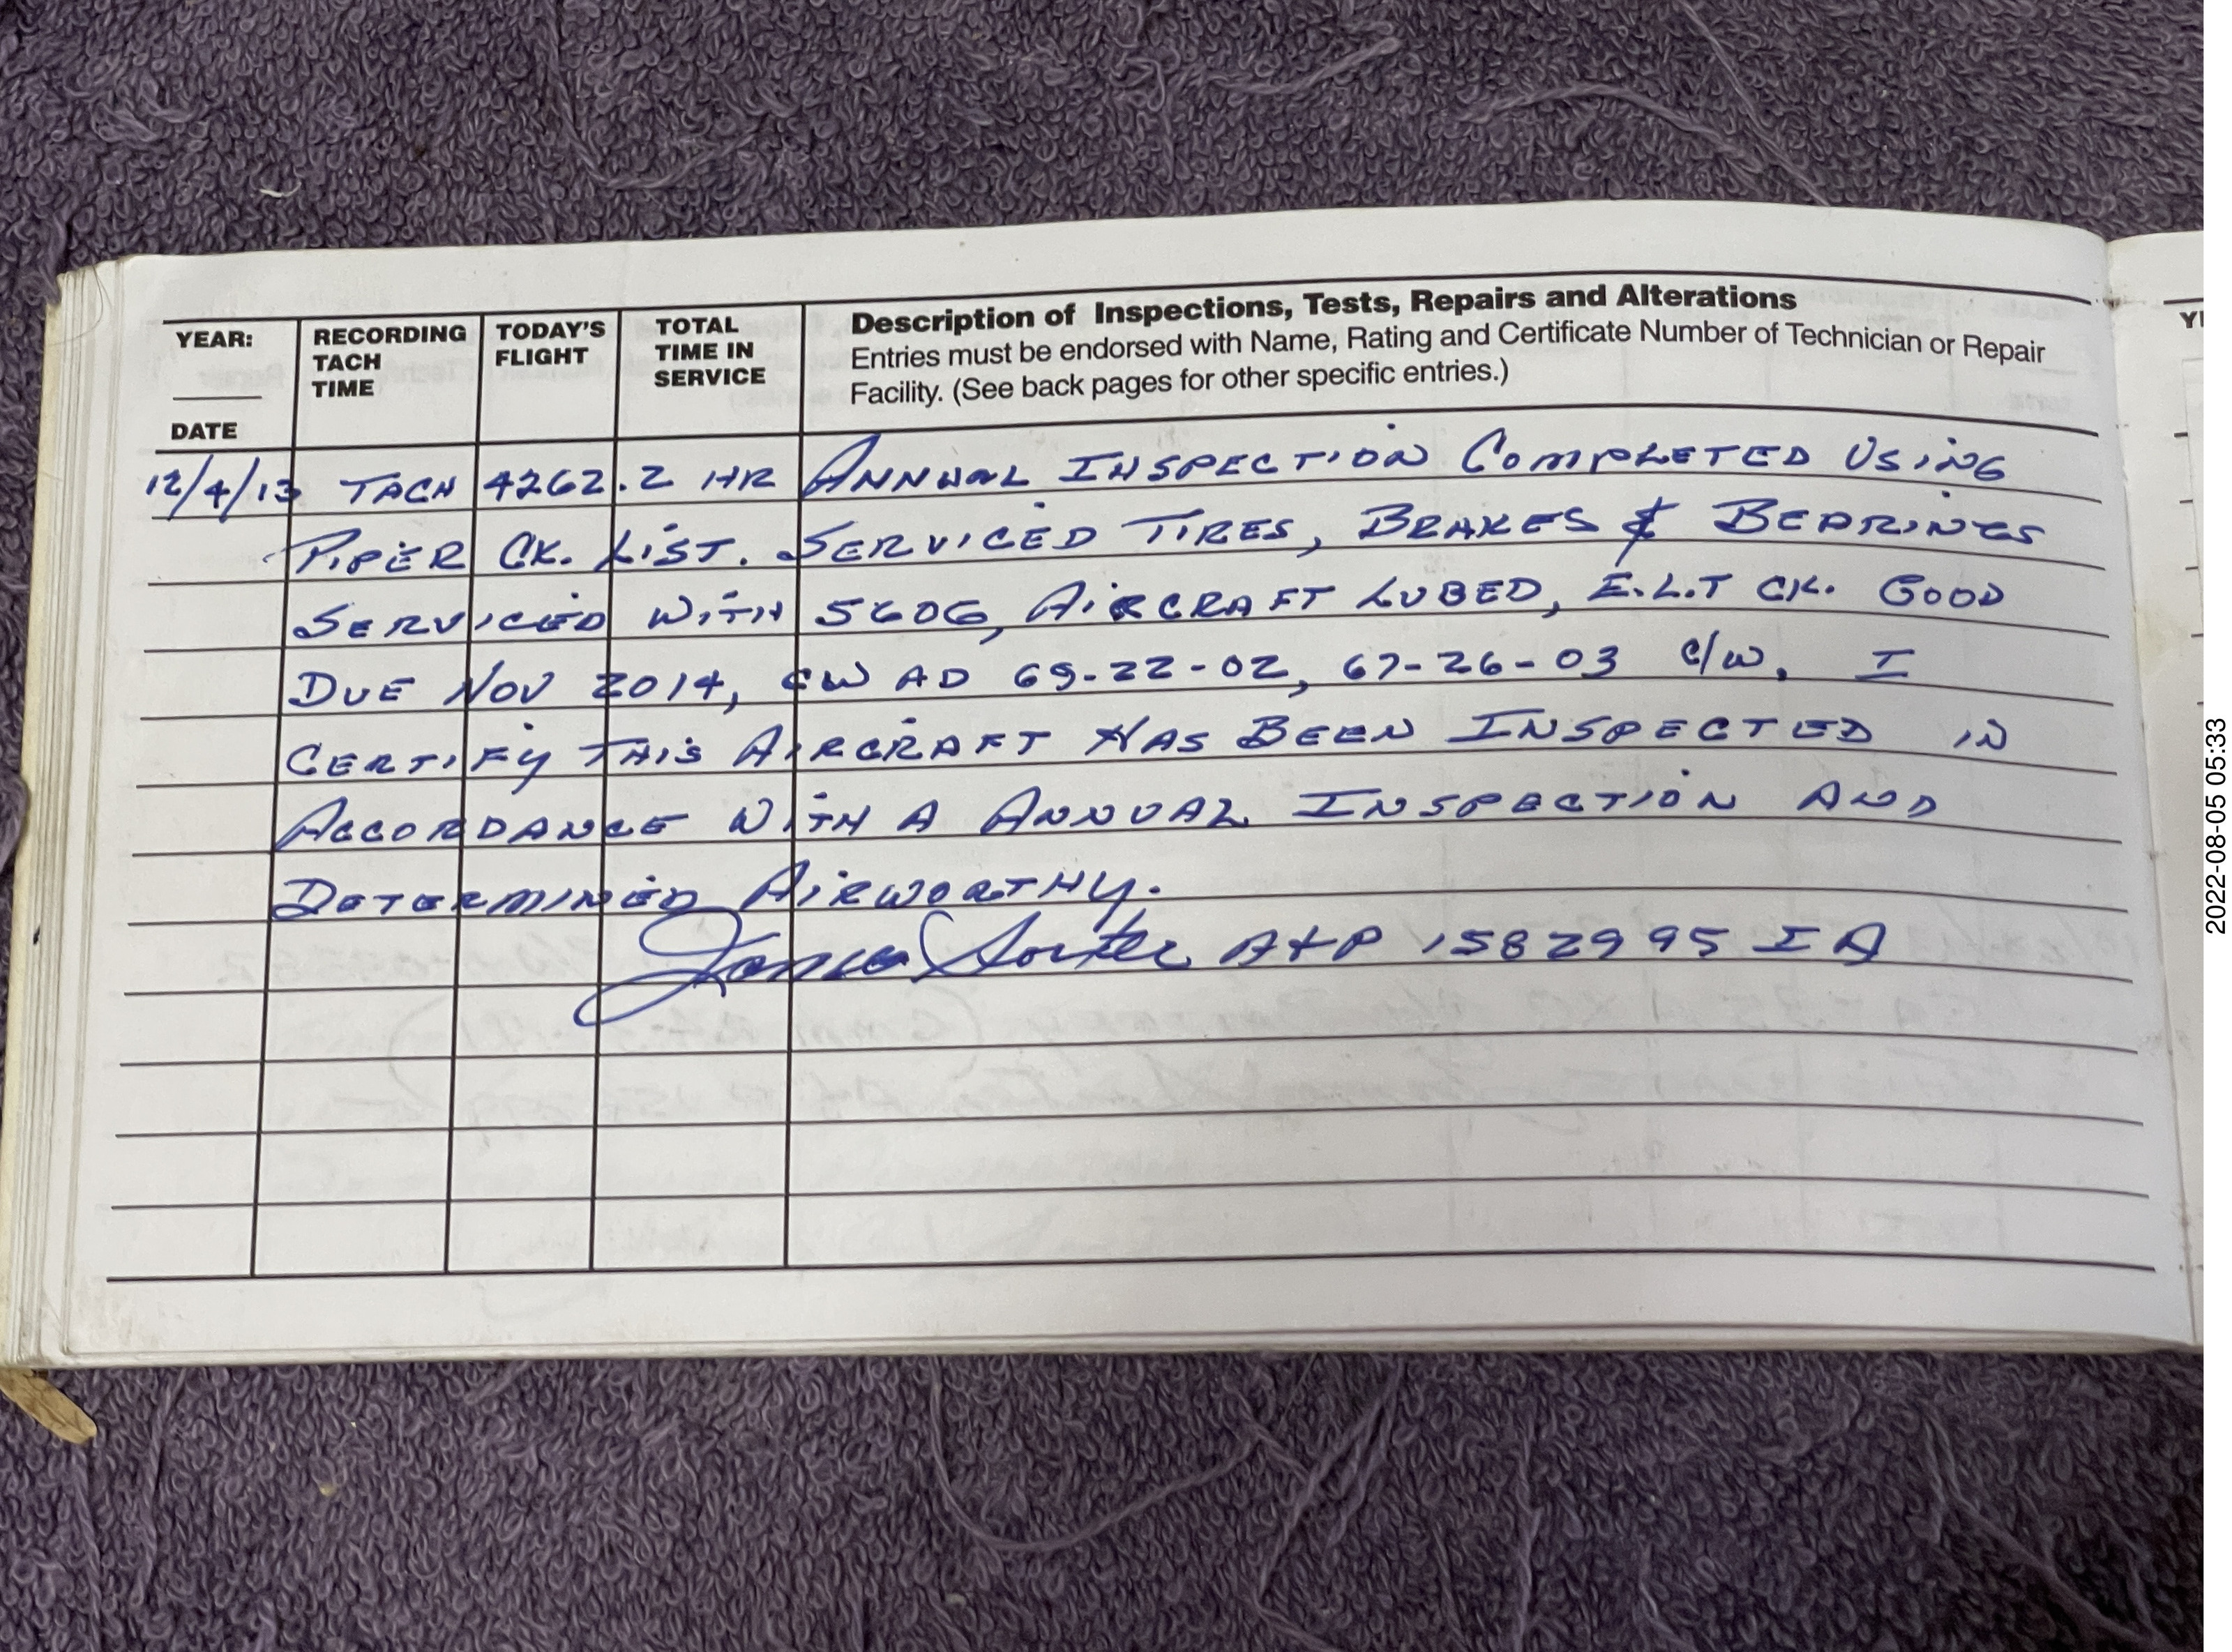 YEAR:
DATE
RECORDING
TACH
TIME
TODAY'S
FLIGHT
TOTAL
TIME IN
SERVICE
Description of Inspections, Tests, Repairs and Alterations
Entries must be endorsed with Name, Rating and Certificate Number of Technician or Repair
Facility. (See back pages for other specific entries.)
12/4/13 TACH 4262.2 HR ANNUAL INSPECTION COMPLETED USING
PIPER CK. LIST. SERVICED TIRES, BRAKES & BEARINGS
SERVICED WITH 5606, AIRCRAFT LUBED, E.L.T CK. GOOD
DUE NOV 2014, CW AD 69-22-02, 67-26-03 C/W. I
CERTIFY THIS AIRCRAFT HAS BEEN INSPECTED IN
ACCORDANCE WITH A ANNUAL INSPECTION AND
DETERMINED AIRWORTHY.
A&P 1582995 IA
2022-08-05 05:33